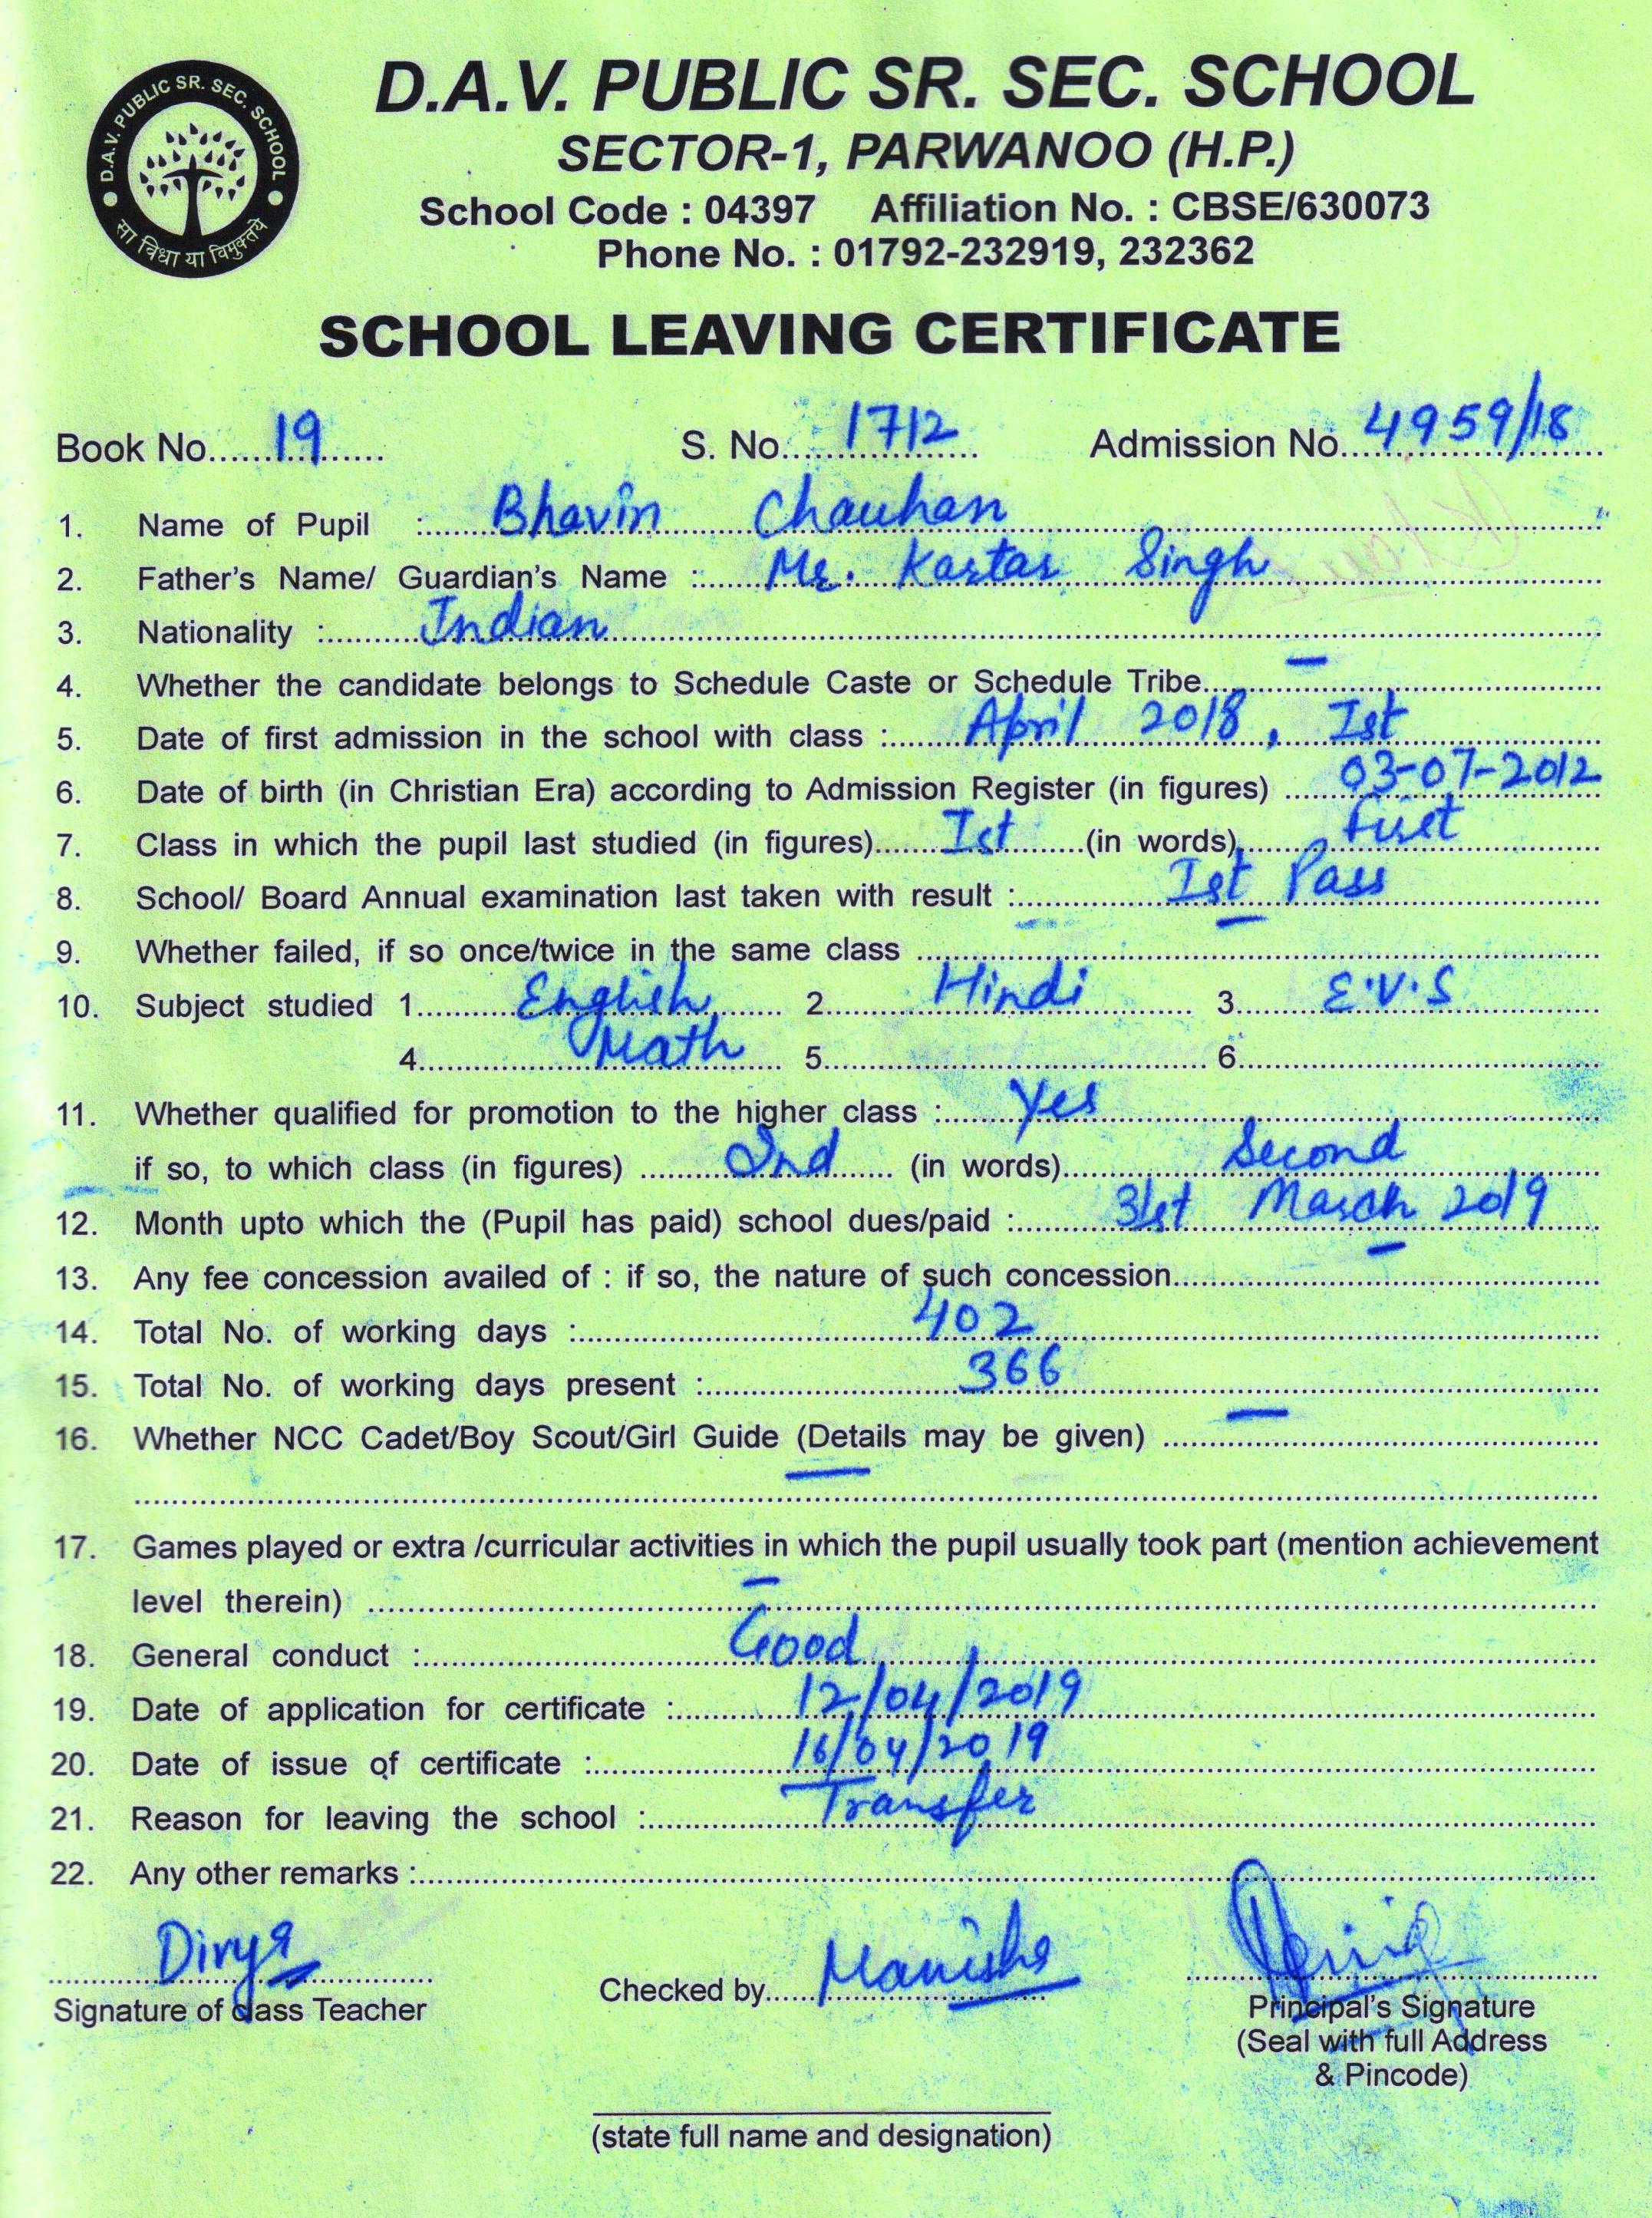 D.A.V. PUBLIC SR. SEC. SCHOOL
सा विद्या या विमुक्तये
D.A.V. PUBLIC SR. SEC. SCHOOL
SECTOR-1, PARWANOO (H.P.)
School Code : 04397 Affiliation No. : CBSE/630073
Phone No. : 01792-232919, 232362
SCHOOL LEAVING CERTIFICATE
Book No......19...... S. No....1712...... Admission No...4959/18......
1. Name of Pupil :......Bhavin Chauhan......
2. Father's Name/ Guardian's Name :......Mr. Kartar Singh......
3. Nationality :......Indian......
4. Whether the candidate belongs to Schedule Caste or Schedule Tribe......–......
5. Date of first admission in the school with class :......April 2018, Ist......
6. Date of birth (in Christian Era) according to Admission Register (in figures) ......03-07-2012
7. Class in which the pupil last studied (in figures)......Ist......(in words)......First......
8. School/ Board Annual examination last taken with result :......Ist Pass......
9. Whether failed, if so once/twice in the same class ......–......
10. Subject studied 1......English...... 2......Hindi...... 3......E.V.S......
4......Math...... 5............ 6............
11. Whether qualified for promotion to the higher class :......Yes......
if so, to which class (in figures) ......2nd...... (in words)......Second......
12. Month upto which the (Pupil has paid) school dues/paid :......31st March 2019......
13. Any fee concession availed of : if so, the nature of such concession......–......
14. Total No. of working days :......402......
15. Total No. of working days present :......366......
16. Whether NCC Cadet/Boy Scout/Girl Guide (Details may be given) ......–......
......–......
17. Games played or extra /curricular activities in which the pupil usually took part (mention achievement
level therein) ......–......
18. General conduct :......Good......
19. Date of application for certificate :......12/04/2019......
20. Date of issue of certificate :......16/04/2019......
21. Reason for leaving the school :......Transfer......
22. Any other remarks :............
Divya
Signature of class Teacher
Checked by......Manisha......
Principal's Signature
(Seal with full Address
& Pincode)
(state full name and designation)